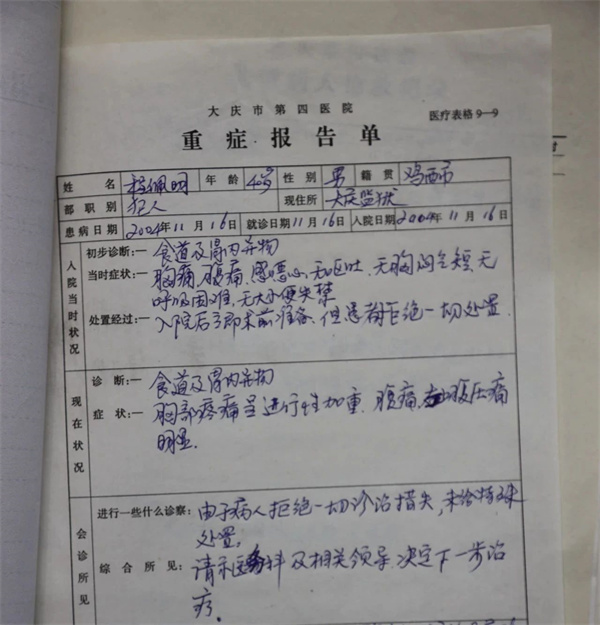 大庆市第四医院
医疗表格9—9
重症报告单
姓名 佩明 年龄 40岁 性别 男 籍贯 鸡西市
部职别 犯人 现住所 大庆监狱
患病日期 2004年11月16日 就诊日期 11月16日 入院日期 2004年11月16日
入院当时状况
初步诊断:— 食道及胃内异物
当时症状:— 胸痛,腹痛,感恶心,无呕吐,无胸闷气短,无
呼吸困难,无大小便失禁
处置经过:— 入院后立即术前准备,但患者拒绝一切处置.
现在状况
诊断:— 食道及胃内异物
症状:— 胸部疼痛呈进行性加重.腹痛,腹压痛
明显.
会诊所见
进行一些什么诊察: 由于病人拒绝一切诊治措失,未给特殊
处置.
综合所见: 请示医务科及相关领导决定下一步治
疗.